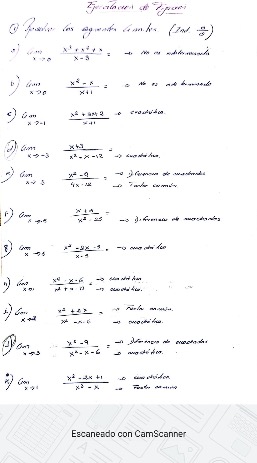 Ejercitacion de Límites
① Resolver los siguientes límites (Ind 0/0)
a) Lim x→0 x³+x²+x / x-3 = → No es indeterminado
b) Lim x→0 x²-x / x+1 = → No es indeterminado
c) Lim x→-1 x²+3x+2 / x+1 → cuadrática.
d) Lim x→-3 x+3 / x²-x-12 → cuadrática.
e) Lim x→3 x²-9 / 4x-12 = → Diferencia de cuadrados → Factor común
f) Lim x²-25 → Diferencia de cuadrados
g) Lim x→3 x²-2x-3 / x-3 = → cuadrática
h) Lim x²-x-6 = → cuadrática → cuadrática.
i) Lim x²+2x / x²-x-6 = → Factor común. → cuadrática.
j) Lim x→3 x²-9 / x²-x-6 = → Diferencia de cuadrados → cuadrática.
k) Lim x→1 x²-2x+1 / x²-x → cuadrática. → Factor común
Escaneado con CamScanner